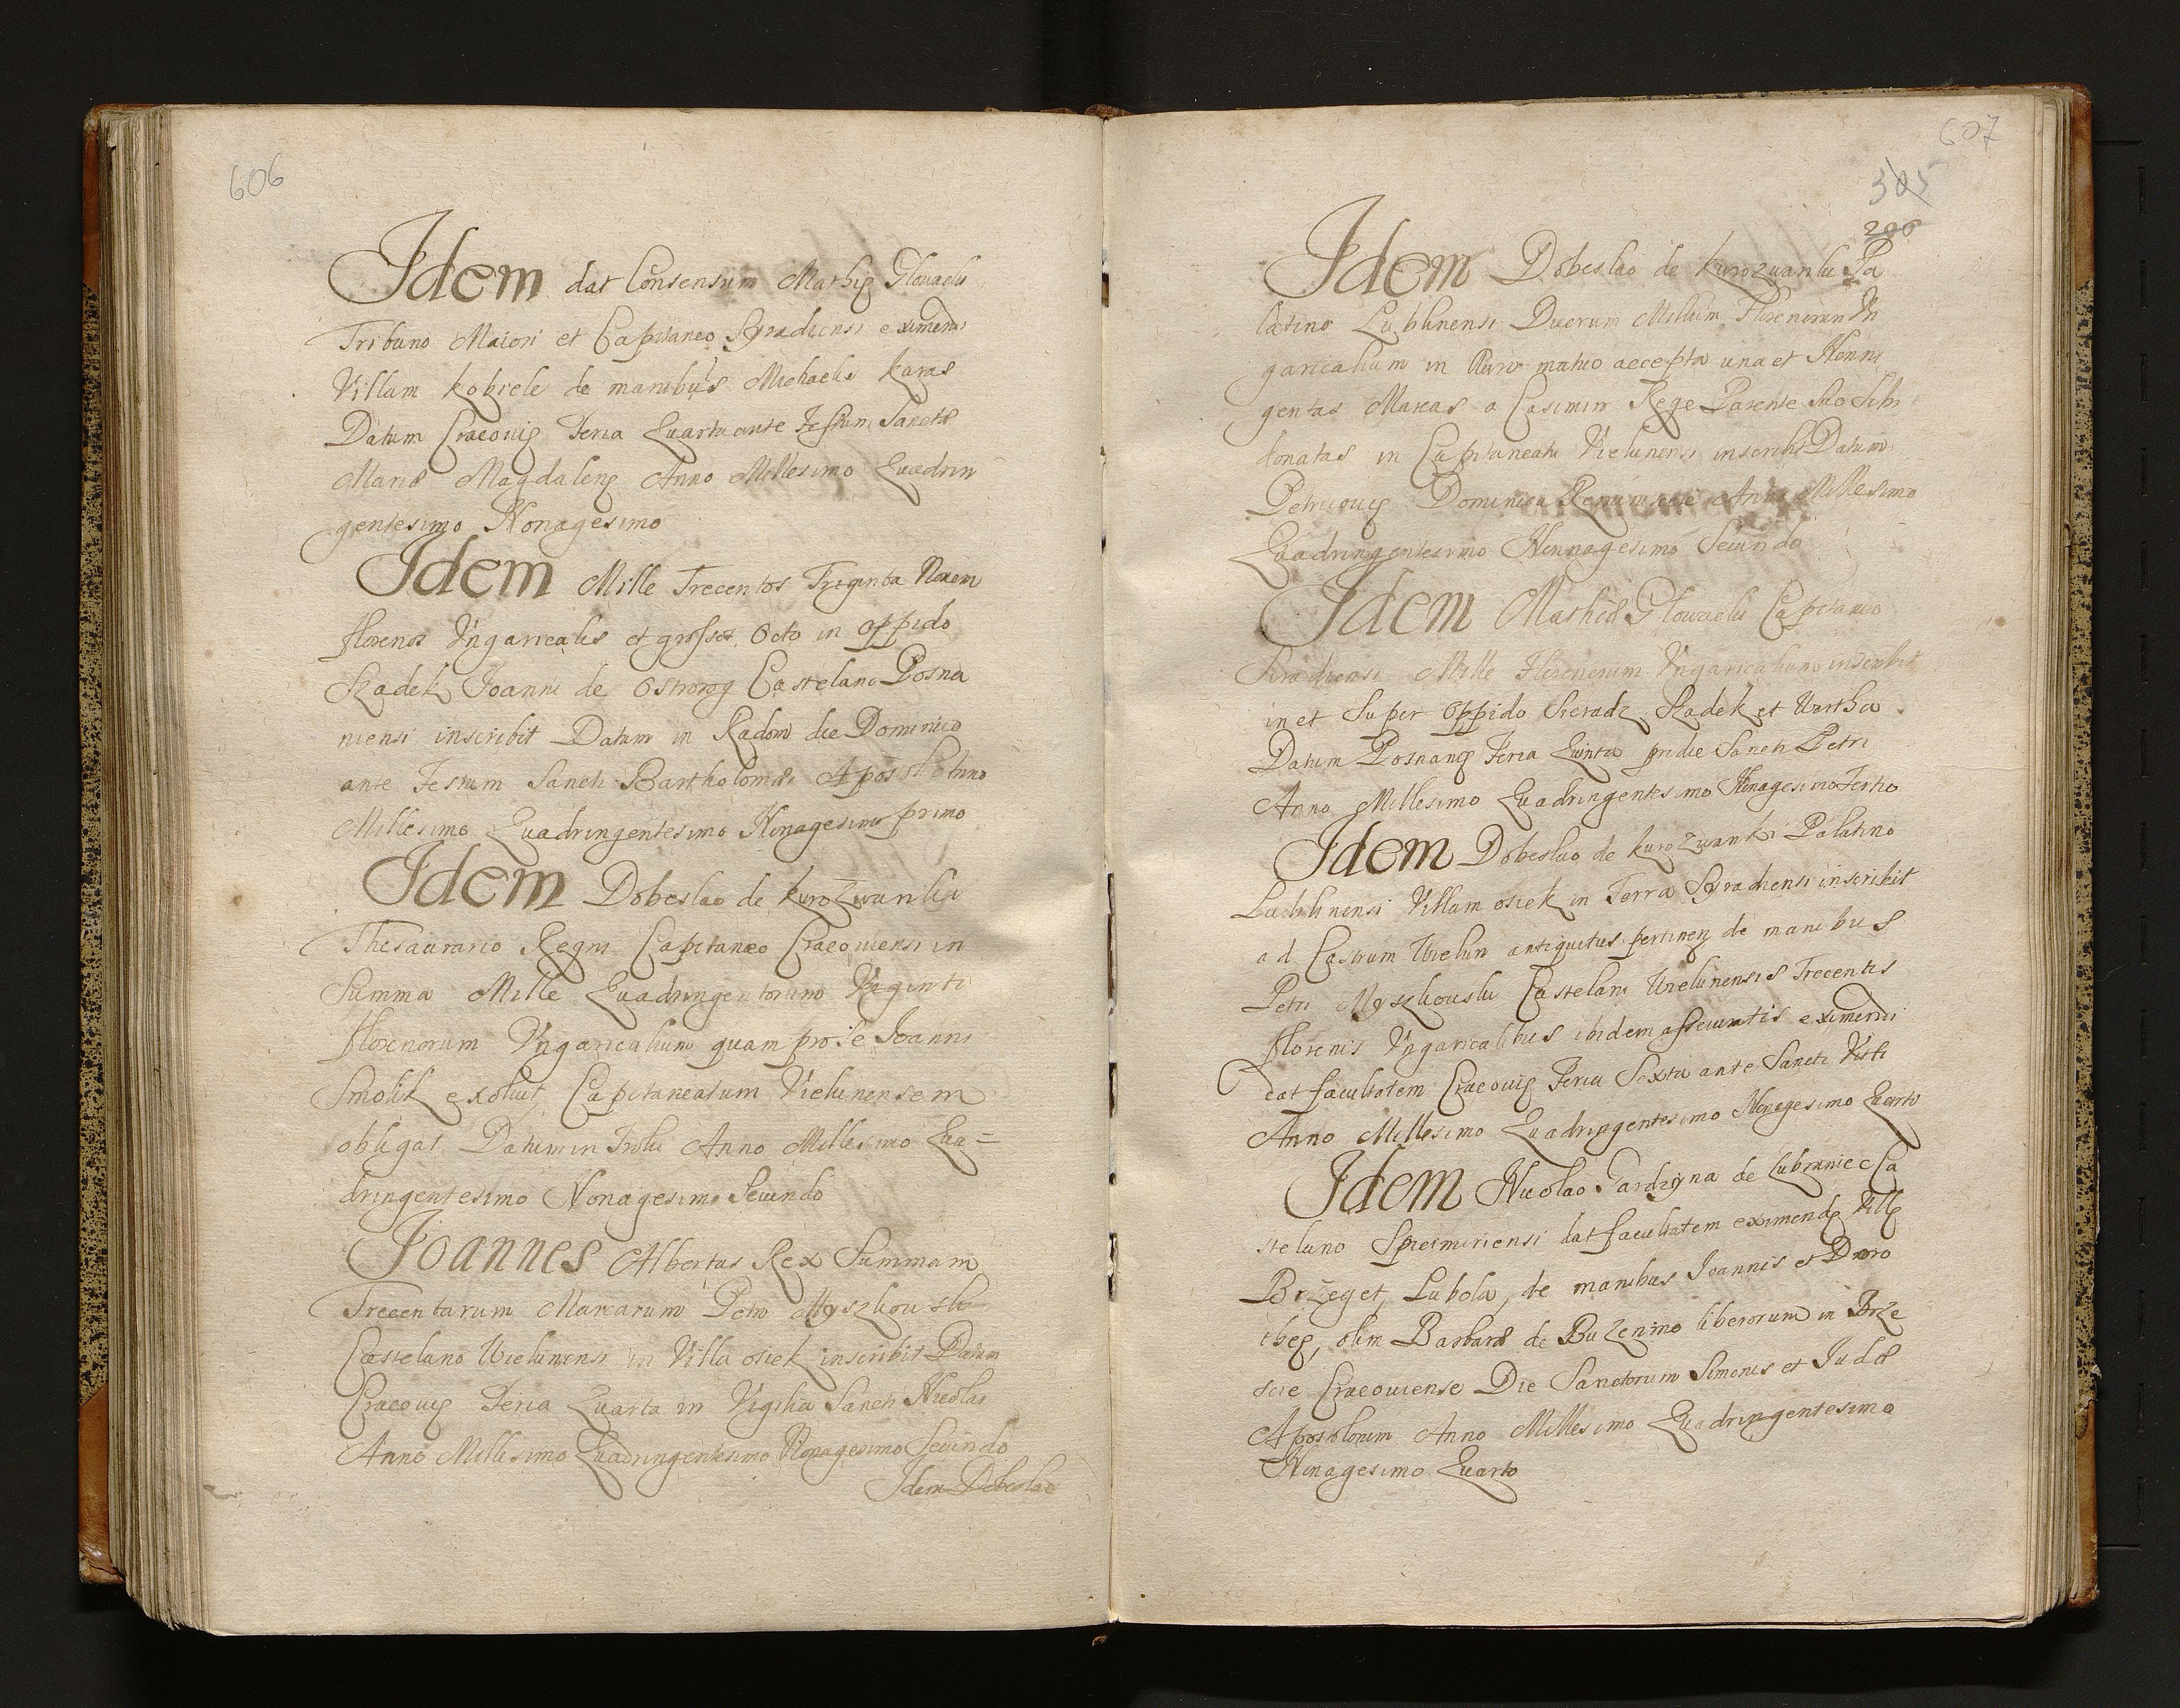 606
Idem dat Consensum Mathię Glouacki
Tribuno Maiori et Capitaneo Syradiensi eximendi
Villam Kobiele de manibus Michaelis Karas
Datum Cracouię Feria Quarta ante Festum Sanctæ
Mariæ Magdalenę Anno Millesimo Quadrin
gentesimo Nonagesimo
Idem Mille Trecentos Triginta Noem
florenos Vngaricales et grossos Octo in oppido
Szadek Joanni de Ostrorog Castelano Posna
niensi inscribit Datum in Radom die Dominico
ante Festum Sancti Bartholomæi Apostoli Anno
Millesimo Quadringentesimo Nonagesimo primo
Idem Dobeslao de Kurozwanki
Thesaurario Regni Capitaneo Cracouiensi in
Summa Mille Quadringentorum Viginti
florenorum Vngaricalium quam pro se Joanni
Smolik exoluit Capitaneatum Vielunensem
obligat Datum in Troki Anno Millesimo Qua=
dringentesimo Nonagesimo Secundo
Joannes Albertus Rex Summam
Trecentarum Marcarum Petro Myszkouski
Castelano Wielunensi in Villa osiek inscribit Datum
Cracouię Feria Quarta in Vigilia Sancti Nicolai
Anno Millesimo Quadringentesimo Nonagesimo Secundo
Idem Dobeslao
607
305
206
Idem Dobeslao de Kurozwanki Pa
latino Lublinensi Duorum Millium Florenorum Vn
garicalium in Auro mutuo accepta una et
gentas Marcas a Casimiro Rege Parente suo Sibi
donatas in Capitaneatu Vielunensi inscribit Datum
Petricouię Dominica Reminiscere Anno Millesimo
Quadringentesimo Nonnagesimo Secundo
Idem Mathiæ Glowacki Capitaneo
Siradiensi Mille Florenorum Vngaricalium inscribit
in et super oppido Sieradz, Szadek et Wartha
Datum Posnanię Feria Quinta pridie Sancti Petri
Anno Millesimo Quadringentesimo Nonagesimo Tertio
Idem Dobeslao de Kurozwanki Palatino
Lublinensi Villam osiek in Terra Syradiensi inscribit
ad Castrum Wielun antiquitus pertinen de manibus
Petri Myszkouski Castelani Wielunensis Trecentis
florenis Vngaricalibus ibidem assecuratis eximendi
dat facultatem Cracouię Feria Sexta ante Sancti Viti
Anno Millesimo Quadringentesimo Nonagesimo Quarto
Idem Nicolao Gardzyna de Lubraniec Ca
stelano Spicimiriensi dat facultatem eximendę Villę
Brzeget, Lubola, de manibus Joannis et Doro
theę, olim Barbaræ de Buzenino liberorum in Brze
scie Cracouiense Die Sanctorum Simonis et Judæ
Apostolorum Anno Millesimo Quadringentesimo
Nonagesimo Quarto